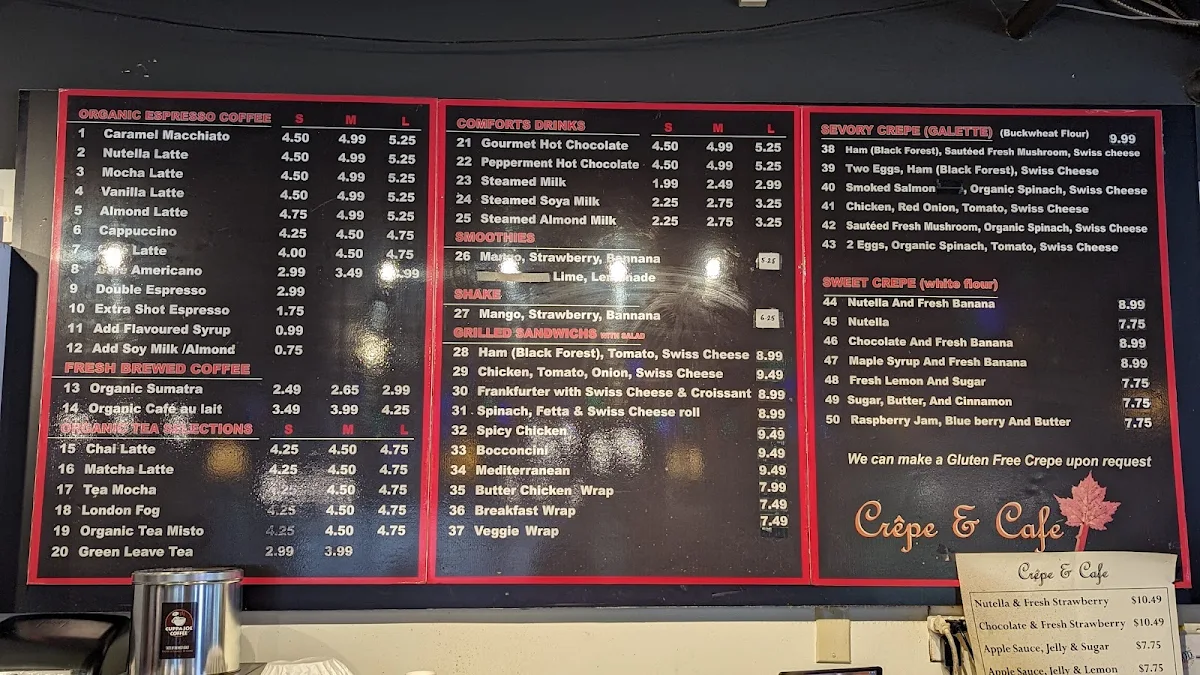 ORGANIC ESPRESSO COFFEE S M L
1 Caramel Macchiato 4.50 4.99 5.25
2 Nutella Latte 4.50 4.99 5.25
3 Mocha Latte 4.50 4.99 5.25
4 Vanilla Latte 4.50 4.99 5.25
5 Almond Latte 4.75 4.99 5.25
6 Cappuccino 4.25 4.50 4.75
7 Latte 4.00 4.50 4.75
8 Café Americano 2.99 3.49
9 Double Espresso 2.99
10 Extra Shot Espresso 1.75
11 Add Flavoured Syrup 0.99
12 Add Soy Milk /Almond 0.75
FRESH BREWED COFFEE
13 Organic Sumatra 2.49 2.65 2.99
14 Organic Café au lait 3.49 3.99 4.25
ORGANIC TEA SELECTIONS S M L
15 Chai Latte 4.25 4.50 4.75
16 Matcha Latte 4.25 4.50 4.75
17 Tea Mocha 4.25 4.50 4.75
18 London Fog 4.25 4.50 4.75
19 Organic Tea Misto 4.25 4.50 4.75
20 Green Leave Tea 2.99 3.99
COMFORTS DRINKS S M L
21 Gourmet Hot Chocolate 4.50 4.99 5.25
22 Pepperment Hot Chocolate 4.50 4.99 5.25
23 Steamed Milk 1.99 2.49 2.99
24 Steamed Soya Milk 2.25 2.75 3.25
25 Steamed Almond Milk 2.25 2.75 3.25
SMOOTHIES
26 Mango, Strawberry, Bannana 5.25
Lime, Lemonade
SHAKE
27 Mango, Strawberry, Bannana 6.25
GRILLED SANDWICHS WITH SALAD
28 Ham (Black Forest), Tomato, Swiss Cheese 8.99
29 Chicken, Tomato, Onion, Swiss Cheese 9.49
30 Frankfurter with Swiss Cheese & Croissant 8.99
31 Spinach, Fetta & Swiss Cheese roll 8.99
32 Spicy Chicken 9.49
33 Bocconcini 9.49
34 Mediterranean 9.49
35 Butter Chicken Wrap 7.99
36 Breakfast Wrap 7.49
37 Veggie Wrap 7.49
SEVORY CREPE (GALETTE) (Buckwheat Flour) 9.99
38 Ham (Black Forest), Sautéed Fresh Mushroom, Swiss cheese
39 Two Eggs, Ham (Black Forest), Swiss Cheese
40 Smoked Salmon , Organic Spinach, Swiss Cheese
41 Chicken, Red Onion, Tomato, Swiss Cheese
42 Sautéed Fresh Mushroom, Organic Spinach, Swiss Cheese
43 2 Eggs, Organic Spinach, Tomato, Swiss Cheese
SWEET CREPE (white flour)
44 Nutella And Fresh Banana 8.99
45 Nutella 7.75
46 Chocolate And Fresh Banana 8.99
47 Maple Syrup And Fresh Banana 8.99
48 Fresh Lemon And Sugar 7.75
49 Sugar, Butter, And Cinnamon 7.75
50 Raspberry Jam, Blue berry And Butter 7.75
We can make a Gluten Free Crepe upon request
Crêpe & Café
Crêpe & Cafe
Nutella & Fresh Strawberry $10.49
Chocolate & Fresh Strawberry $10.49
Apple Sauce, Jelly & Sugar $7.75
Apple Sauce, Jelly & Lemon $7.75
CUPPAJOE
COFFEE